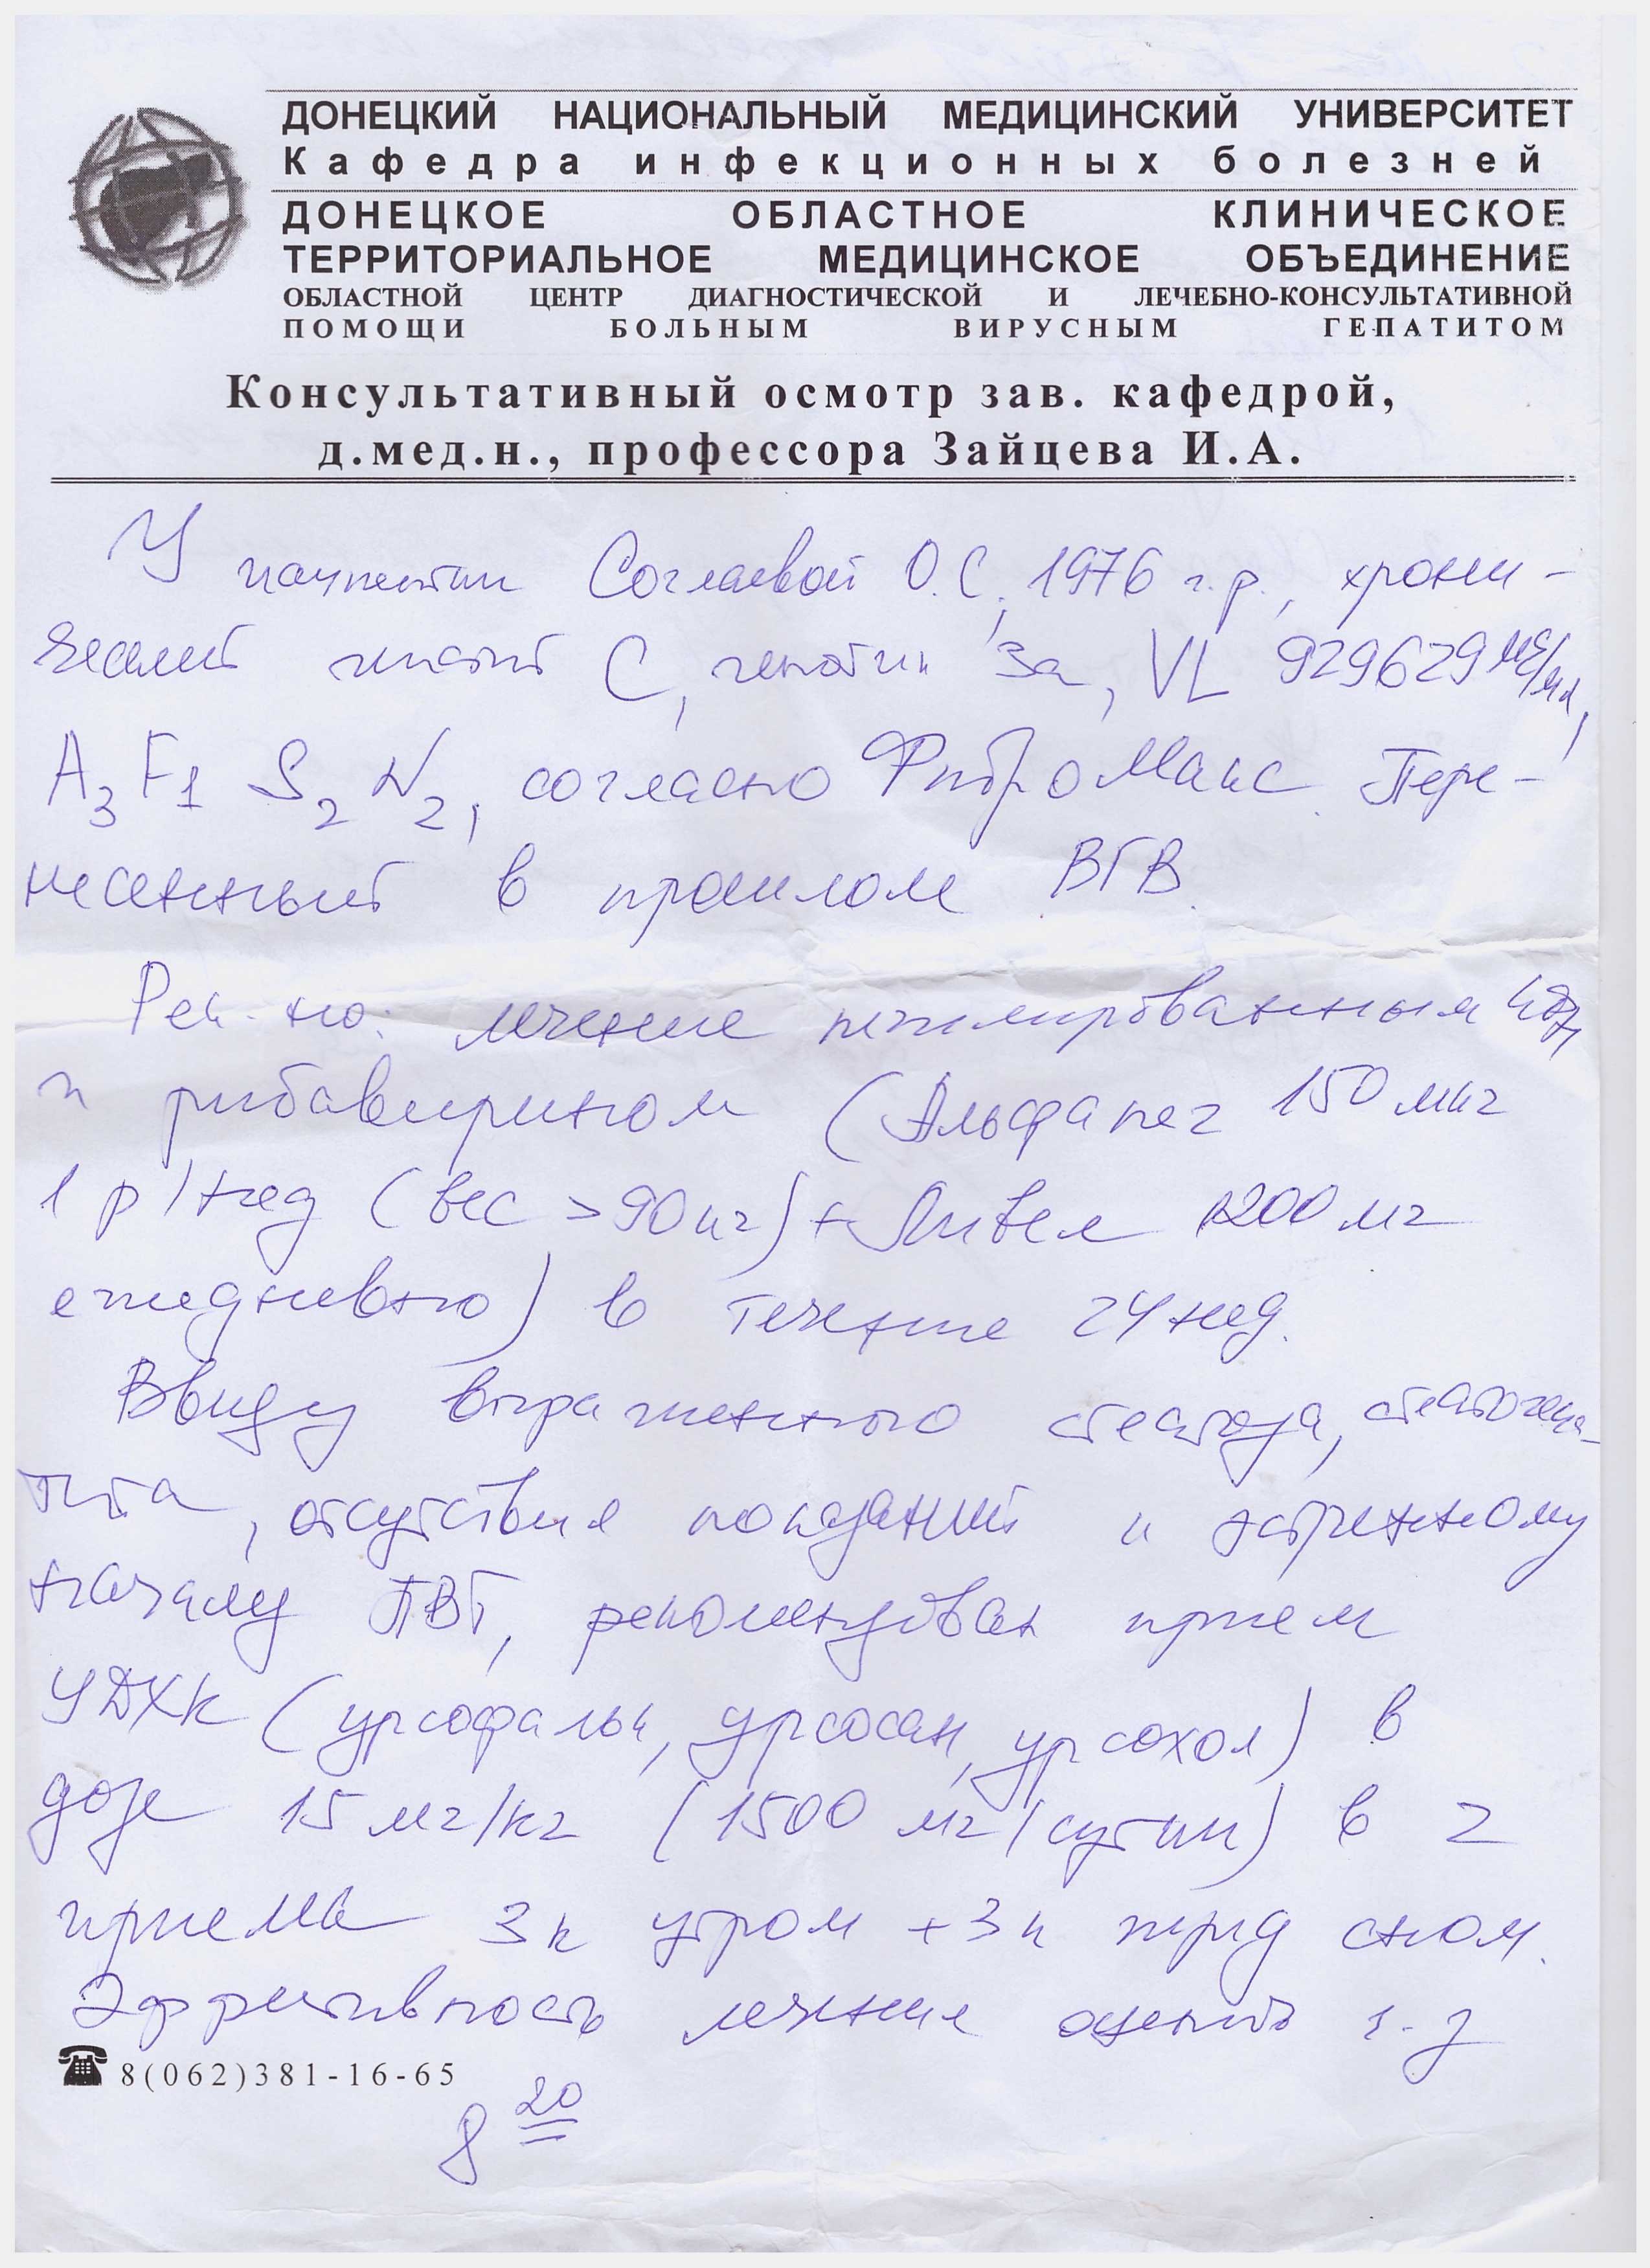 ДОНЕЦКИЙ НАЦИОНАЛЬНЫЙ МЕДИЦИНСКИЙ УНИВЕРСИТЕТ
Кафедра инфекционных болезней
ДОНЕЦКОЕ ОБЛАСТНОЕ КЛИНИЧЕСКОЕ
ТЕРРИТОРИАЛЬНОЕ МЕДИЦИНСКОЕ ОБЪЕДИНЕНИЕ
ОБЛАСТНОЙ ЦЕНТР ДИАГНОСТИЧЕСКОЙ И ЛЕЧЕБНО-КОНСУЛЬТАТИВНОЙ
ПОМОЩИ БОЛЬНЫМ ВИРУСНЫМ ГЕПАТИТОМ
Консультативный осмотр зав. кафедрой,
д.мед.н., профессора Зайцева И.А.
У пациентки О.С., 1976 г.р., хрони-
ческий С, генотип 3а, VL 929629 МЕ/мл,
A3 F1 S2 N2, согласно ФиброМакс. Пере-
несенный в прошлом ВГВ.
Рек-но: лечение пегилированным
и рибавирином (Альфапег 150 мкг
1 р/нед (вес >90 кг) + Ливел 1200 мг
ежедневно) в течение 24 нед.
Ввиду выраженного стеатоза, стеатогепа-
тита, отсутствия показаний к экстренному
началу ПВТ, рекомендован прием
УДХК (урсофальк, урсосан, урсохол) в
дозе 15 мг/кг (1500 мг/сутки) в 2
приема 3к утром + 3к перед сном.
Эффективность лечения оценить ч-з
8(062)381-16-65
8 20